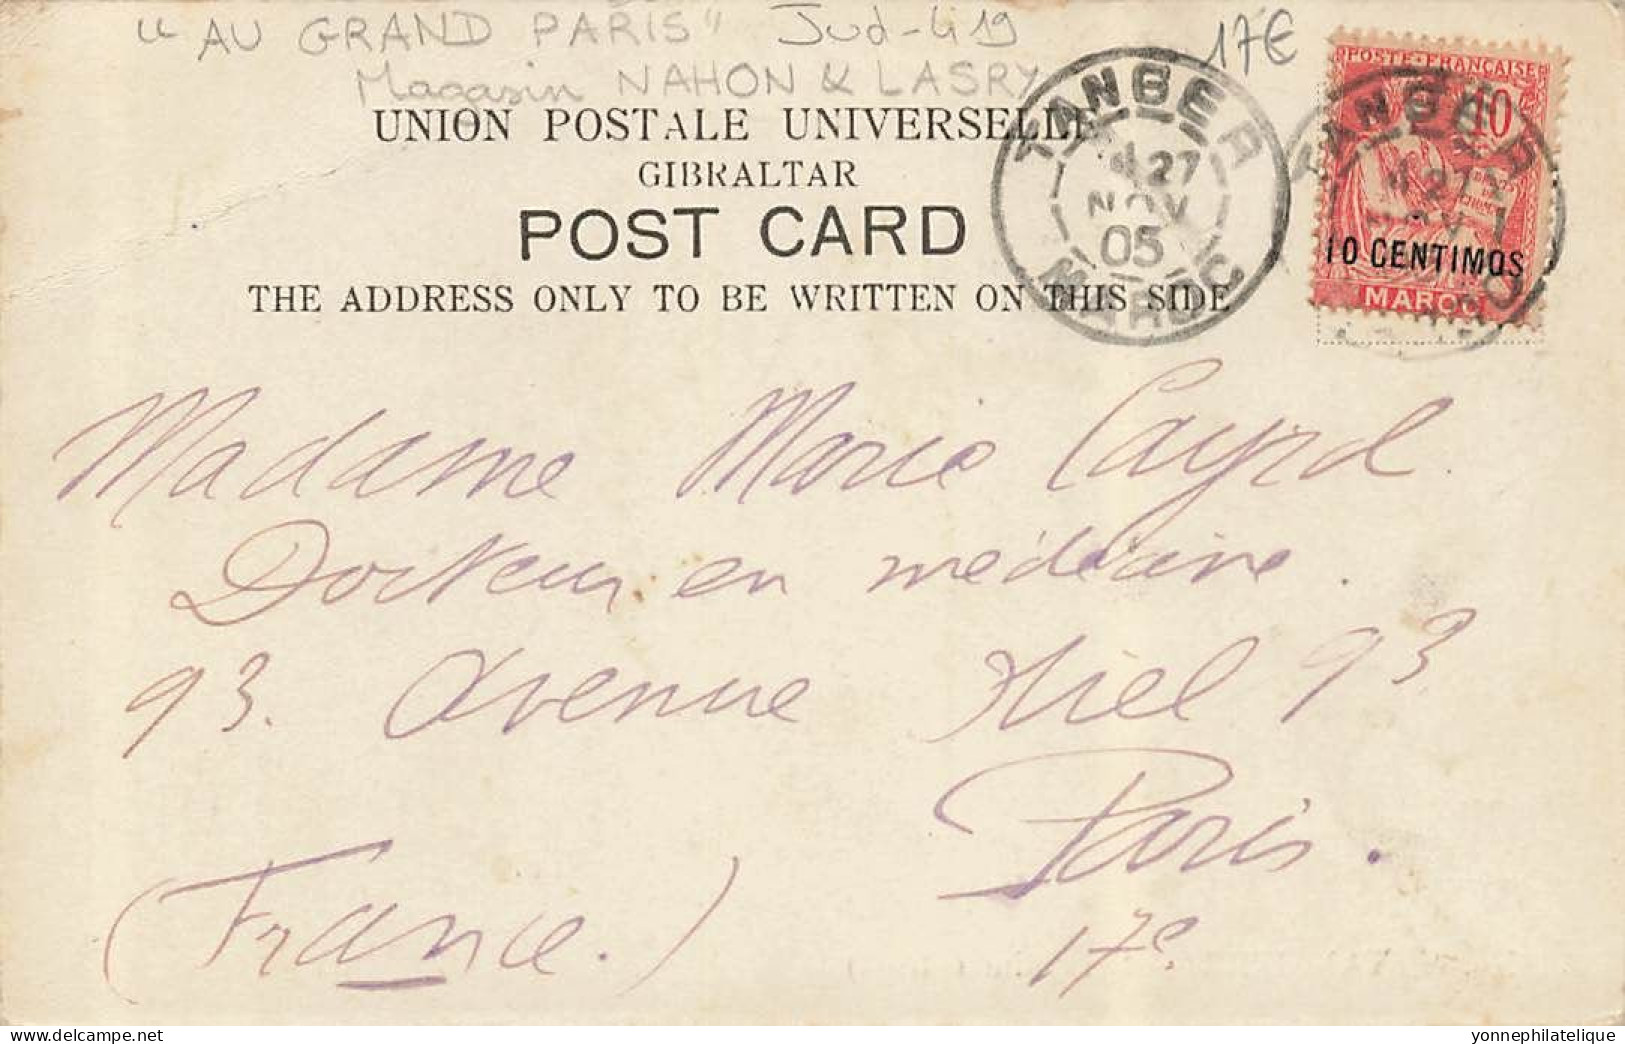 “AU GRAND PARIS” Jud-419
17€
Magasin NAHON & LASRY
UNION POSTALE UNIVERSELLE
GIBRALTAR
POST CARD
THE ADDRESS ONLY TO BE WRITTEN ON THIS SIDE
TANGER
27
NOV
05
MAROC
POSTE FRANÇAISE
10
10 CENTIMOS
MAROC
TANGER
27
Madame Marie Cayrol.
Docteur en médecine.
93. Avenue Niel 93
Paris.
(France.) 17e
yonnephilatelique